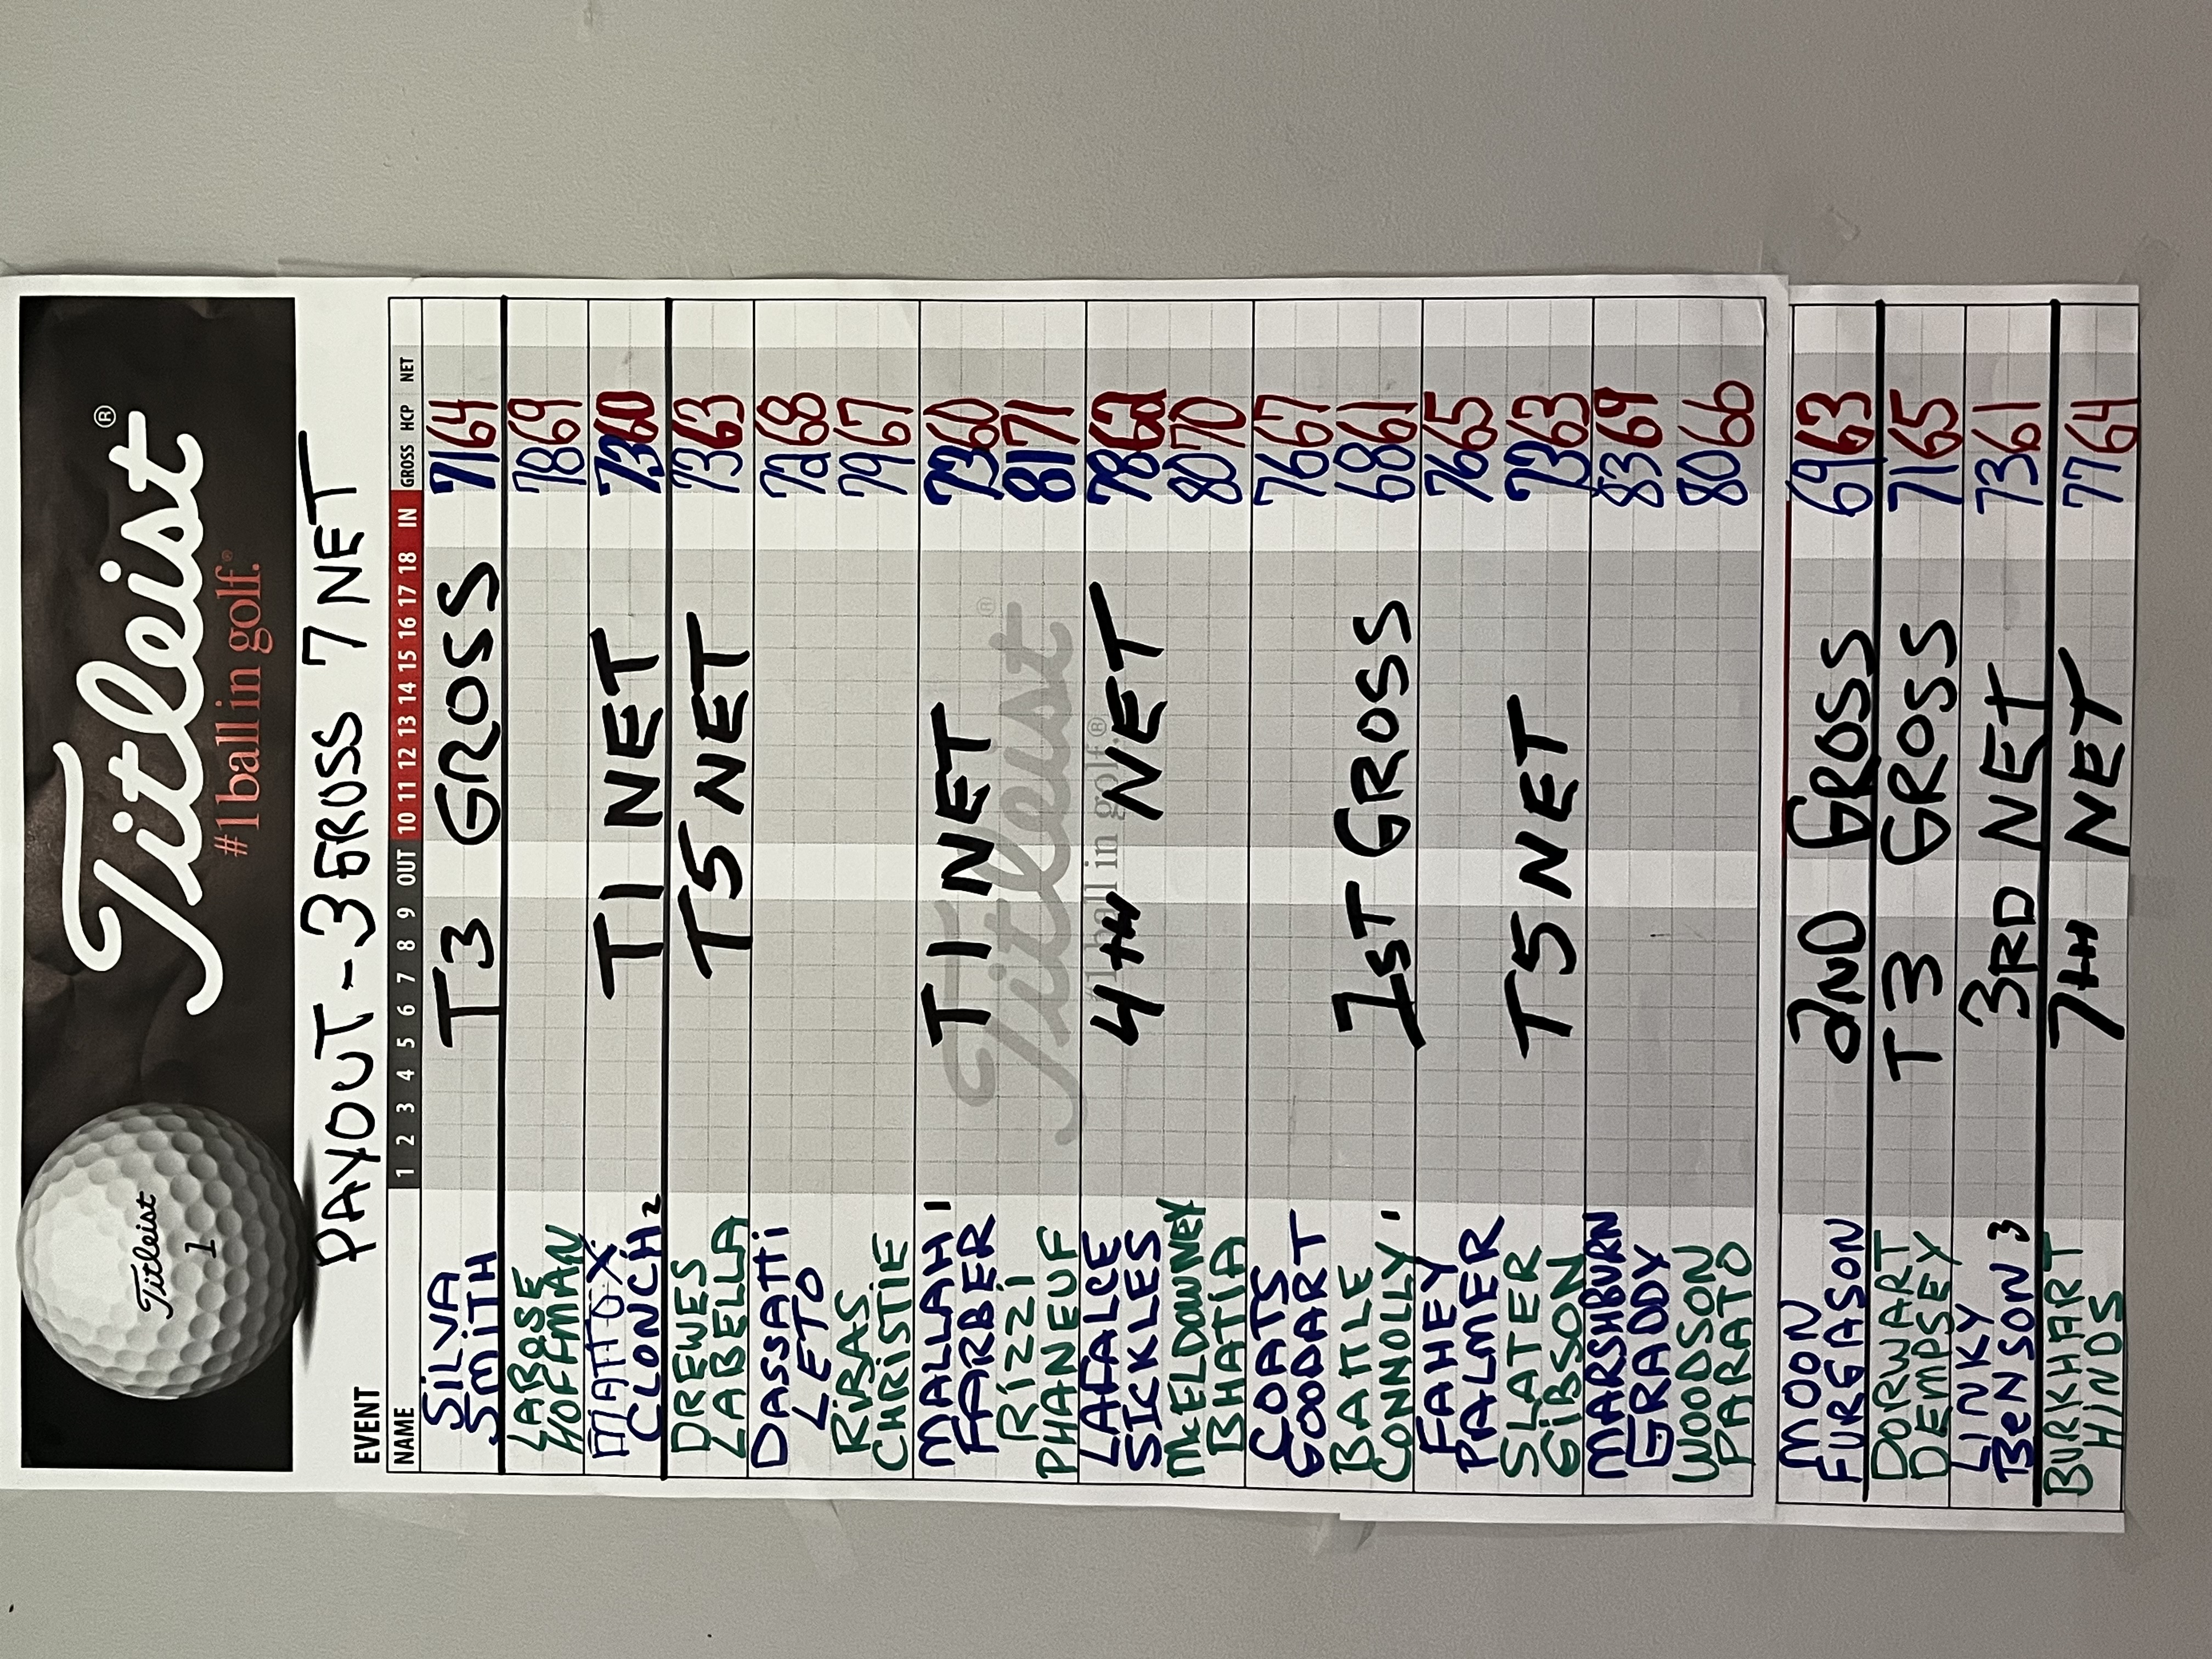 Titleist®
#1 ball in golf.®
Titleist
1
PAYOUT - 3 GROSS 7 NET
EVENT
NAME 1 2 3 4 5 6 7 8 9 OUT 10 11 12 13 14 15 16 17 18 IN GROSS HCP NET
SILVA
SMITH T3 GROSS 71 64
LABOSE
HOFFMAN 78 69
MATTOX
CLONCH 2 T1 NET 73 60
DREWES
LABELLA T5 NET 73 63
DASSATTI
LETO 72 68
RIBAS
CHRISTIE 79 67
MALLAH 1
FARBER T1 NET 73 60
RIZZI
PHANEUF 81 71
LAFALCE
SICKLES 4TH NET 78 62
MCELDOWNEY
BHATIA 80 70
COATS
GODDART 76 67
BATTLE
CONNOLLY 1 1ST GROSS 68 61
FAHEY
PALMER 76 65
SLATER
GIBSON T5 NET 73 63
MARSHBURN
GRADDY 83 69
WOODSON
PARATO 80 66
Titleist®
#1 ball in golf.®
MOON
FURGASON 2ND GROSS 69 63
DORWART
DEMPSEY T3 GROSS 71 65
LINKY
BENSON 3 3RD NET 73 61
BURKHART
HINDS 7TH NET 77 64